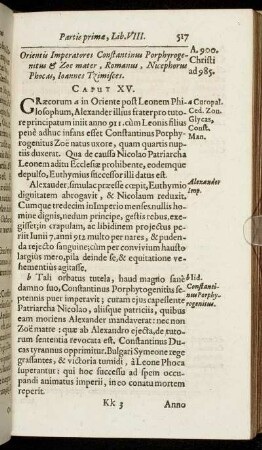 Partis primæ, Lib. VIII. 517
Orientis Imperatores Constantinus Porphyroge-
nitus & Zoe mater, Romanus, Nicephorus
Phocas, Ioannes Tzimisces.
A. 900.
Christi
ad 985.
CAPUT XV.
GRæcorum a in Oriente post Leonem Phi-
losophum, Alexander illius frater pro tuto-
re principatum iniit anno 911. cùm Leonis filius
penè adhuc infans esset Constantinus Porphy-
rogenitus Zoë natus uxore, quam quartis nup-
tiis duxerat. Qua de caussa Nicolao Patriarcha
Leonem aditu Ecclesiæ prohibente, eodemque
depulso, Euthymius successor illi datus est.
a Curopal.
Ced. Zon.
Glycas,
Const.
Man.
Alexander, simulac præesse cœpit, Euthymio
dignitatem abrogavit, & Nicolaum reduxit.
Cumque tredecim in Imperio menses, nulli vir
homine dignis, nedum principe, gestis rebus, ex-
egisset; in crapulam, ac libidinem projectus pe-
riit Iunii 7. anni 912 multo per nares, & puden-
da rejecto sanguine; cùm per convivium hausto
largiùs mero, pila deinde se, & equitatione ve-
hementiùs agitasse.
Alexander
Imp.
b Tali orbatus tutela, haud magno sanè
damno suo, Constantinus Porphyrogenitus se-
ptennis puer imperavit; cùm ejus capessente
Patriarcha Nicolao, aliisque patriciis, quibus
eam moriens Alexander mandaverat: nec non
Zoë matre: quæ ab Alexandro ejecta, de tuto-
rum sententia revocata est. Constantinus Du-
cas tyrannus opprimitur. Bulgari Symeone rege
grassantes, & victoria tumidi, à Leone Phoca
superantur: qui hoc successu ad spem occu-
pandi animatus imperii, in eo conatu mortem
reperit.
b Iid.
Constanti-
nus Porphy-
rogenitus.
Kk 3 Anno